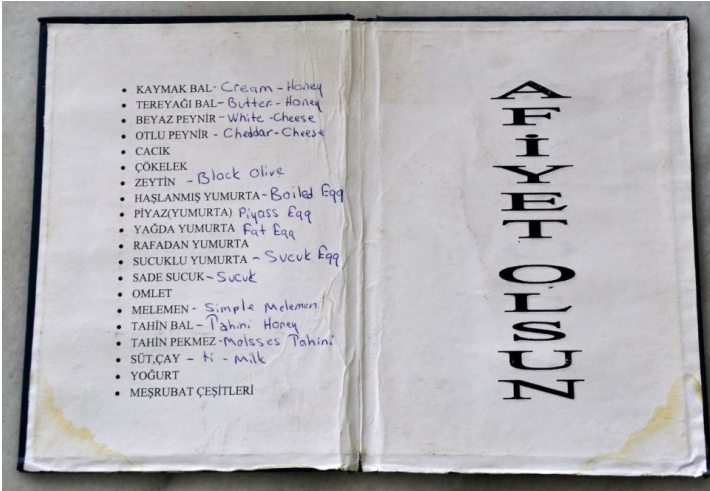 • KAYMAK BAL - Cream - Honey
• TEREYAĞI BAL - Butter - Honey
• BEYAZ PEYNİR - White - Cheese
• OTLU PEYNİR - Cheddar - Cheese
• CACIK
• ÇÖKELEK
• ZEYTİN - Black Olive
• HAŞLANMIŞ YUMURTA - Boiled Egg
• PİYAZ(YUMURTA) Piyass Egg
• YAĞDA YUMURTA Fat Egg
• RAFADAN YUMURTA
• SUCUKLU YUMURTA - Sucuk Egg
• SADE SUCUK - Sucuk
• OMLET
• MELEMEN - Simple Melemen
• TAHİN BAL - Tahini Honey
• TAHİN PEKMEZ - Molsses Tahini
• SÜT,ÇAY - ti - Milk
• YOĞURT
• MEŞRUBAT ÇEŞİTLERİ
AFİYET OLSUN